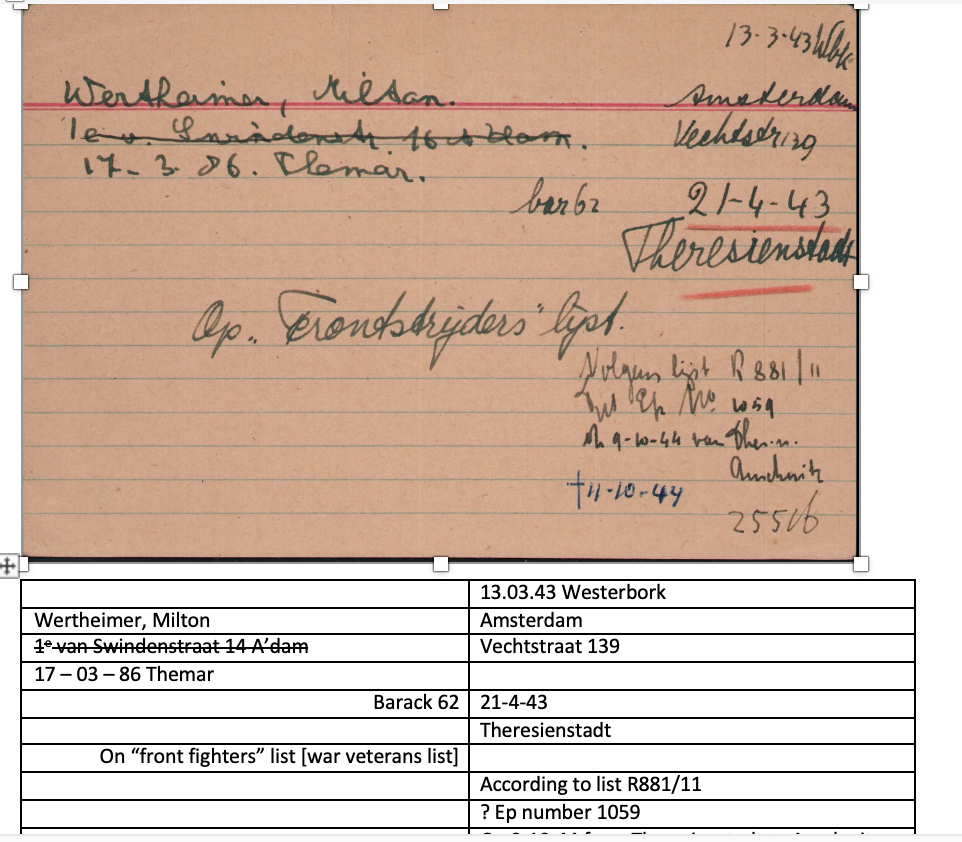 13-3-43 Wbk
Wertheimer, Milton.
Amsterdam
1e v. Swindenstr 16 A'dam.
Vechtstr 139
17-3-86. Themar.
bar 62 21-4-43
Theresienstadt
Op „Frontstrijders" lijst.
Volgens lijst R 881/11
Ep No. 1059
9-10-44 van Ther. n.
Auschwitz
†11-10-44
25516
13.03.43 Westerbork
Wertheimer, Milton Amsterdam
1e van Swindenstraat 14 A’dam Vechtstraat 139
17 – 03 – 86 Themar
Barack 62 21-4-43
Theresienstadt
On “front fighters” list [war veterans list]
According to list R881/11
? Ep number 1059